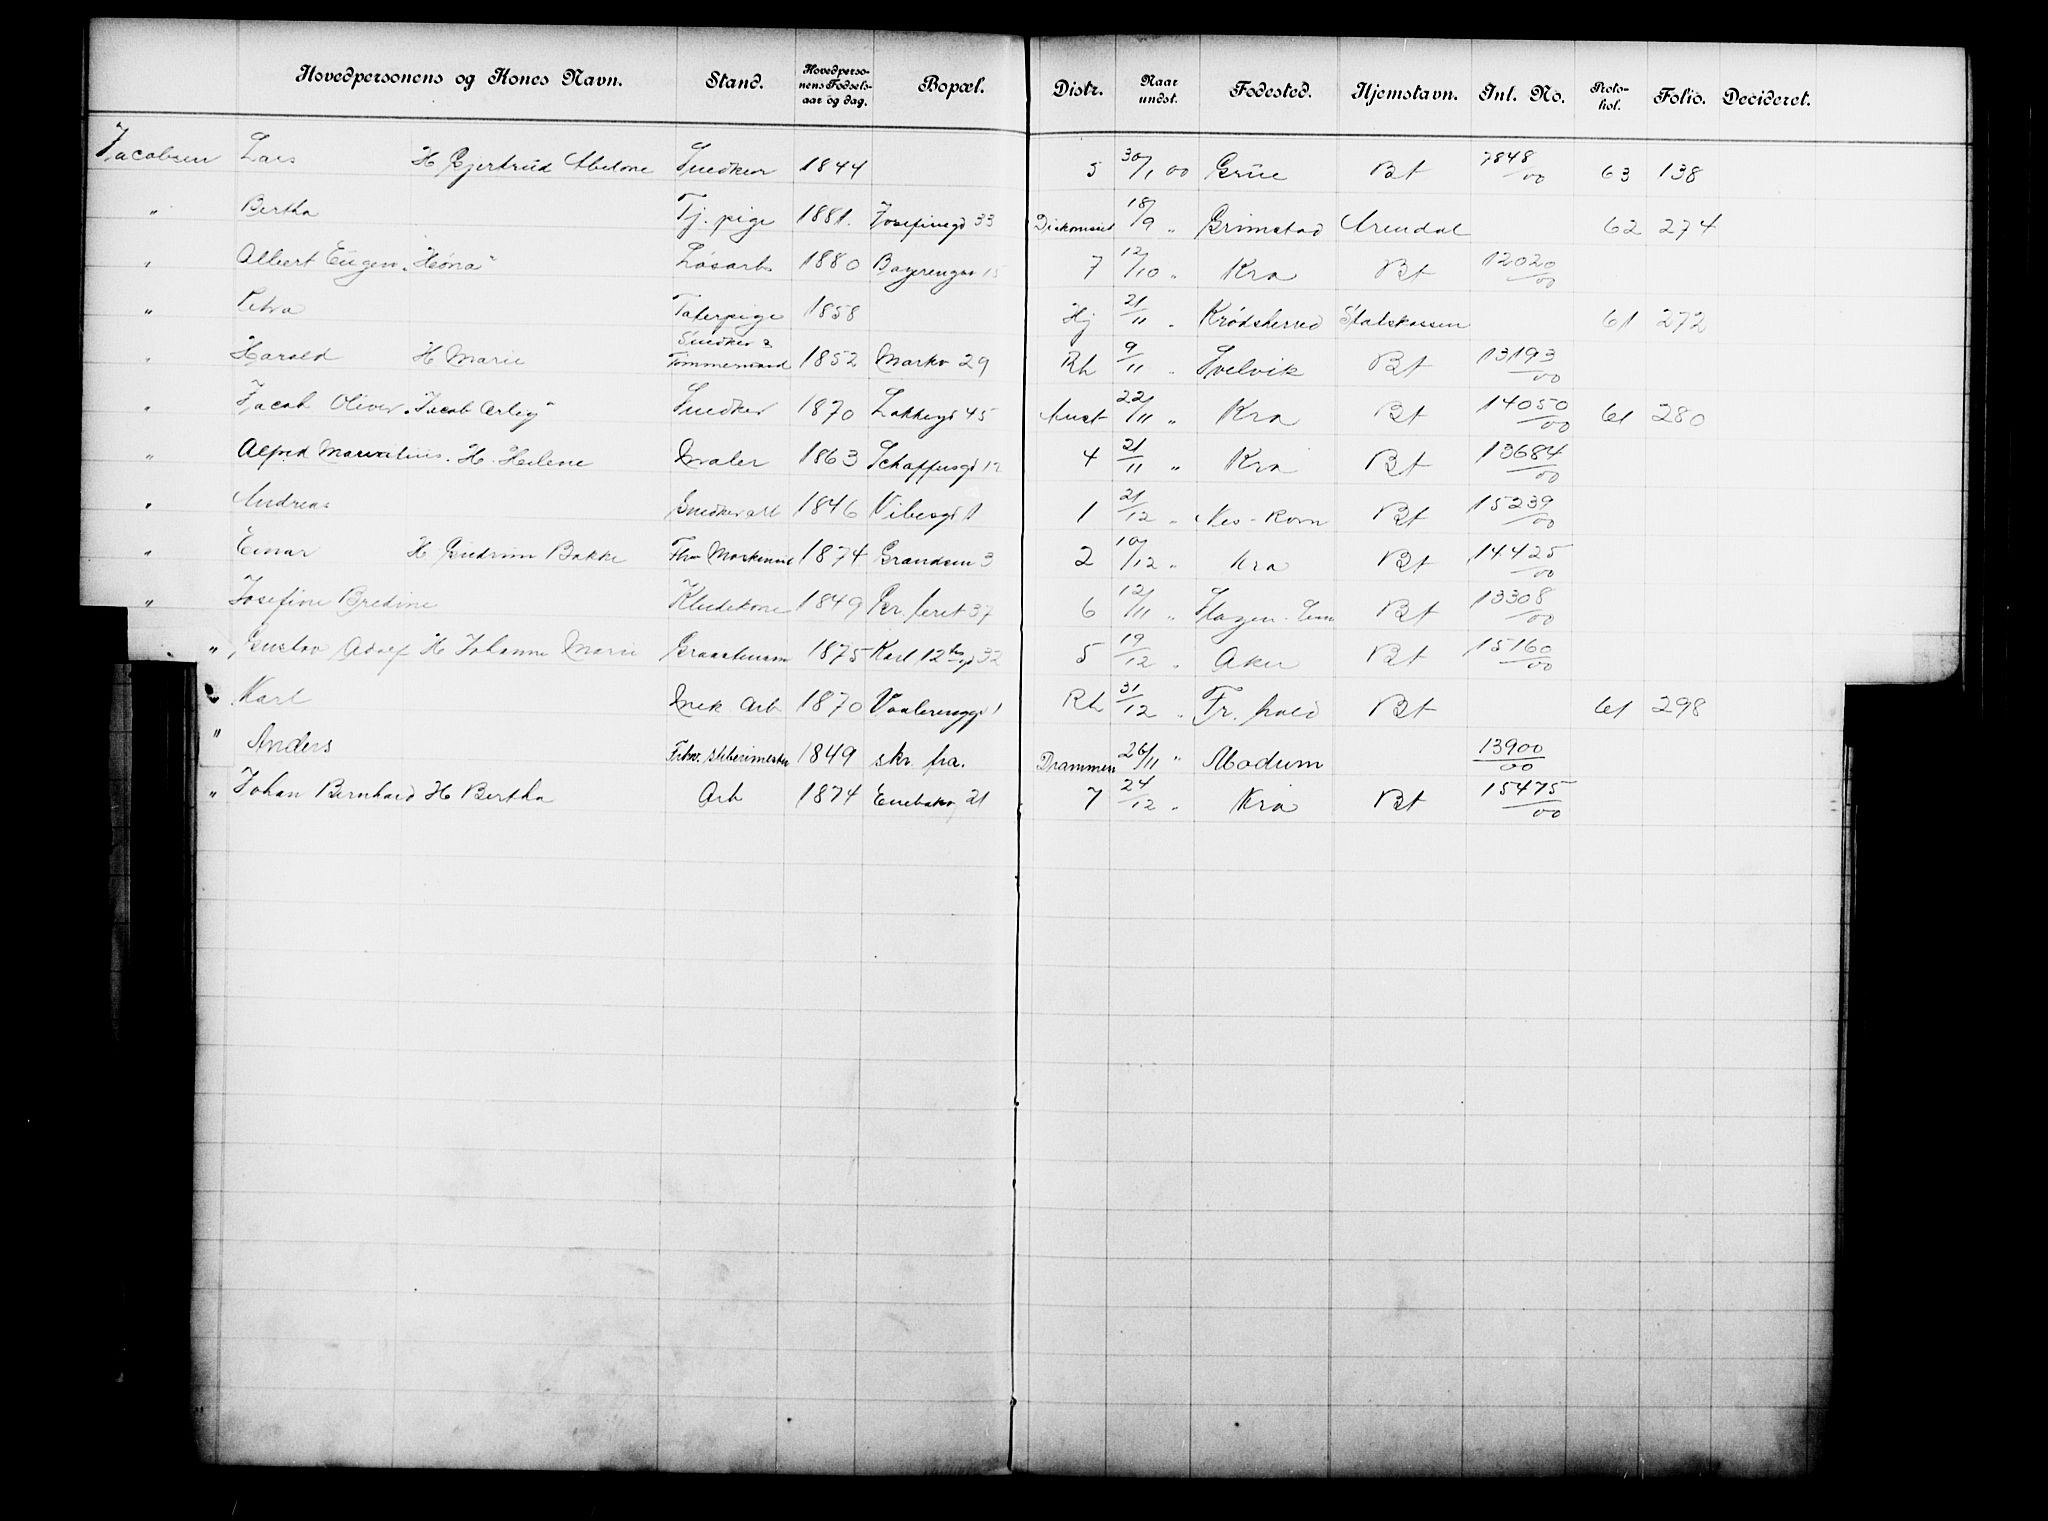 Hovedpersonens og Kones Navn. Stand. Hovedperso-nens Fødsels-aar og dag. Bopæl. Distr. Naar undst. Fødested. Hjemstavn. Int. No. Proto-kol. Folio. Decideret.
Jacobsen Lars H Gjertrud Abelone Snedker 1844 5 30/1 00 Grue Bt 7848/00 63 138
" Bertha Tj. pige 1881. Josefinegd 33 18/9 " Grimstad Arendal 62 274
" Albert Eugen "Høna" Løsarb 1880 15 7 12/10 " Kra Bt 12020/00
" Petra Taterpige 1858 Hj 21/11 " Krødsherred Statskassen 61 272
" Harald H Marie Snedker & Tømmermand 1852 Markv 29 Rh 9/11 " Svelvik Bt 13193/00
" Jacob Oliver "Jacob Arbig" Snedker 1870 Lakkegd 45 Anst 22/11 " Kra Bt 14050/00 61 280
" Alfred H. Helene Maler 1863 12 4 21/11 " Kra Bt 13684/00
" Andreas Snedkerarb 1846 Vibesgd 1 1 21/12 " Nes - Rom Bt 15239/00
" Einar H Gudrun Bakke 1874 Grændsen 3 2 10/12 " Kra Bt 14425/00
" Josefine Bredine Kludekone 1849 37 6 12/11 " Slagen Bt 13308/00
" Gustav Adolf H Johanne Marie 1875 Karl 12tes gd 32 5 19/12 " Aker Bt 15160/00
" Karl Mek. Arb 1870 Vaalerenggd 1 Rh 31/12 " Fr. hald Bt 61 298
" Anders 1849 skr. fra. Drammen 26/11 " Modum 13900/00
" Johan Bernhard H Bertha Arb 1874 Enebakv 21 7 24/12 " Kra Bt 15475/00